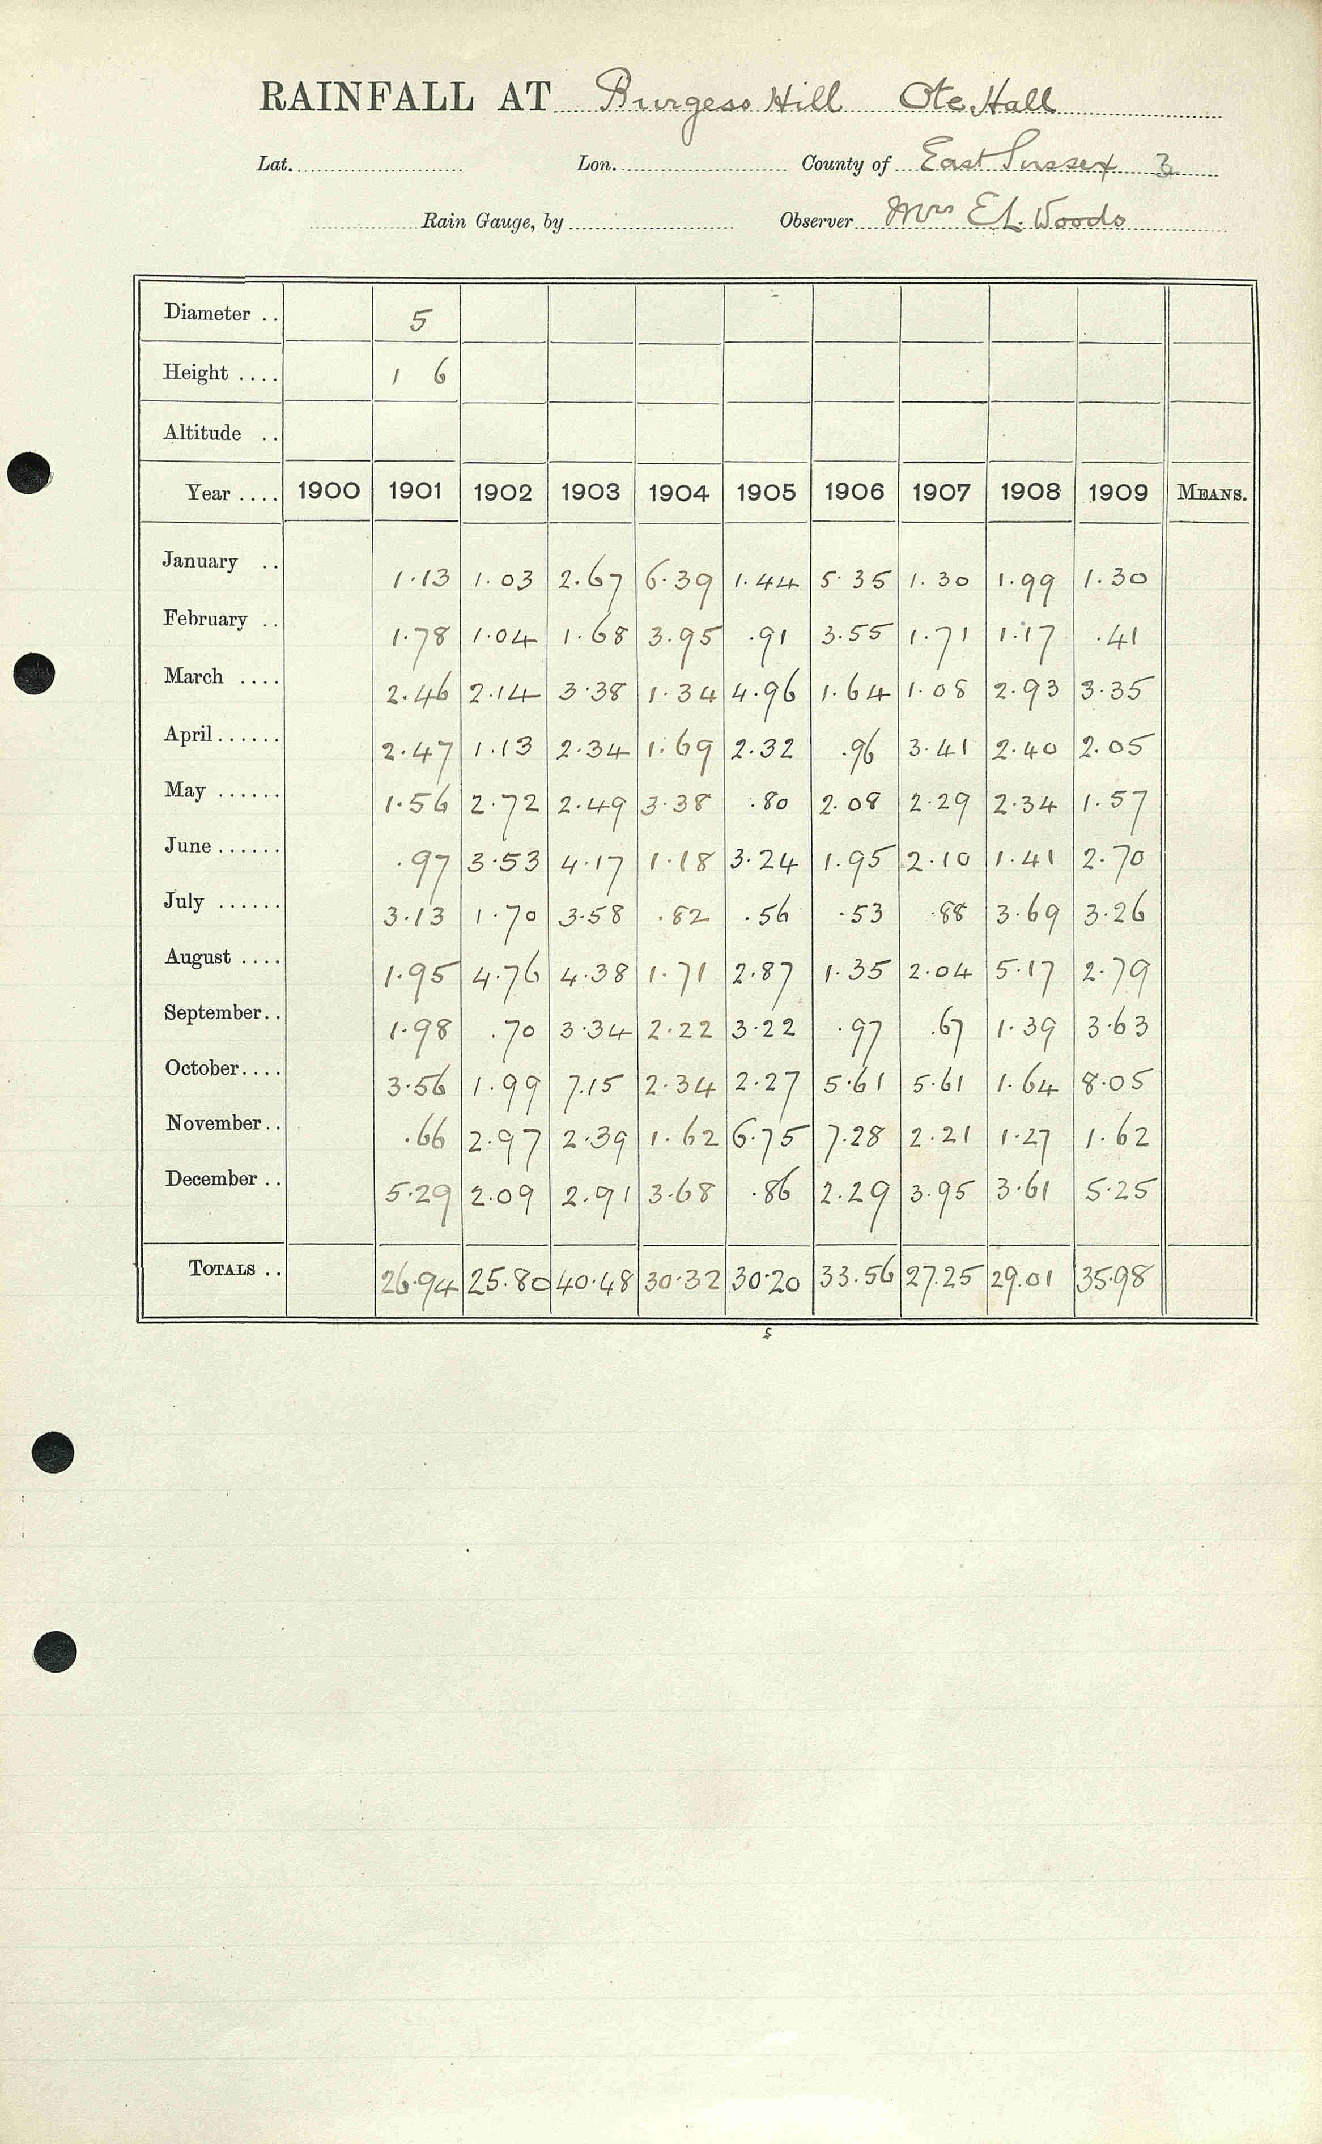 RAINFALL AT Burgess Hill Ote Hall
Lat. Lon. County of East Sussex 3
Rain Gauge, by Observer Mrs E.L. Woods
Diameter .. 5
Height .... 1 6
Altitude ..
Year .... 1900 1901 1902 1903 1904 1905 1906 1907 1908 1909 MEANS.
January .. 1.13 1.03 2.67 6.39 1.44 5.35 1.30 1.99 1.30
February .. 1.78 1.04 1.68 3.95 .91 3.55 1.71 1.17 .41
March .... 2.46 2.14 3.38 1.34 4.96 1.64 1.08 2.93 3.35
April...... 2.47 1.13 2.34 1.69 2.32 .96 3.41 2.40 2.05
May ...... 1.56 2.72 2.49 3.38 .80 2.08 2.29 2.34 1.57
June...... .97 3.53 4.17 1.18 3.24 1.95 2.10 1.41 2.70
July ...... 3.13 1.70 3.58 .82 .56 .53 .88 3.69 3.26
August .... 1.95 4.76 4.38 1.71 2.87 1.35 2.04 5.17 2.79
September.. 1.98 .70 3.34 2.22 3.22 .97 .67 1.39 3.63
October.... 3.56 1.99 7.15 2.34 2.27 5.61 5.61 1.64 8.05
November.. .66 2.97 2.39 1.62 6.75 7.28 2.21 1.27 1.62
December .. 5.29 2.09 2.91 3.68 .86 2.29 3.95 3.61 5.25
TOTALS .. 26.94 25.80 40.48 30.32 30.20 33.56 27.25 29.01 35.98